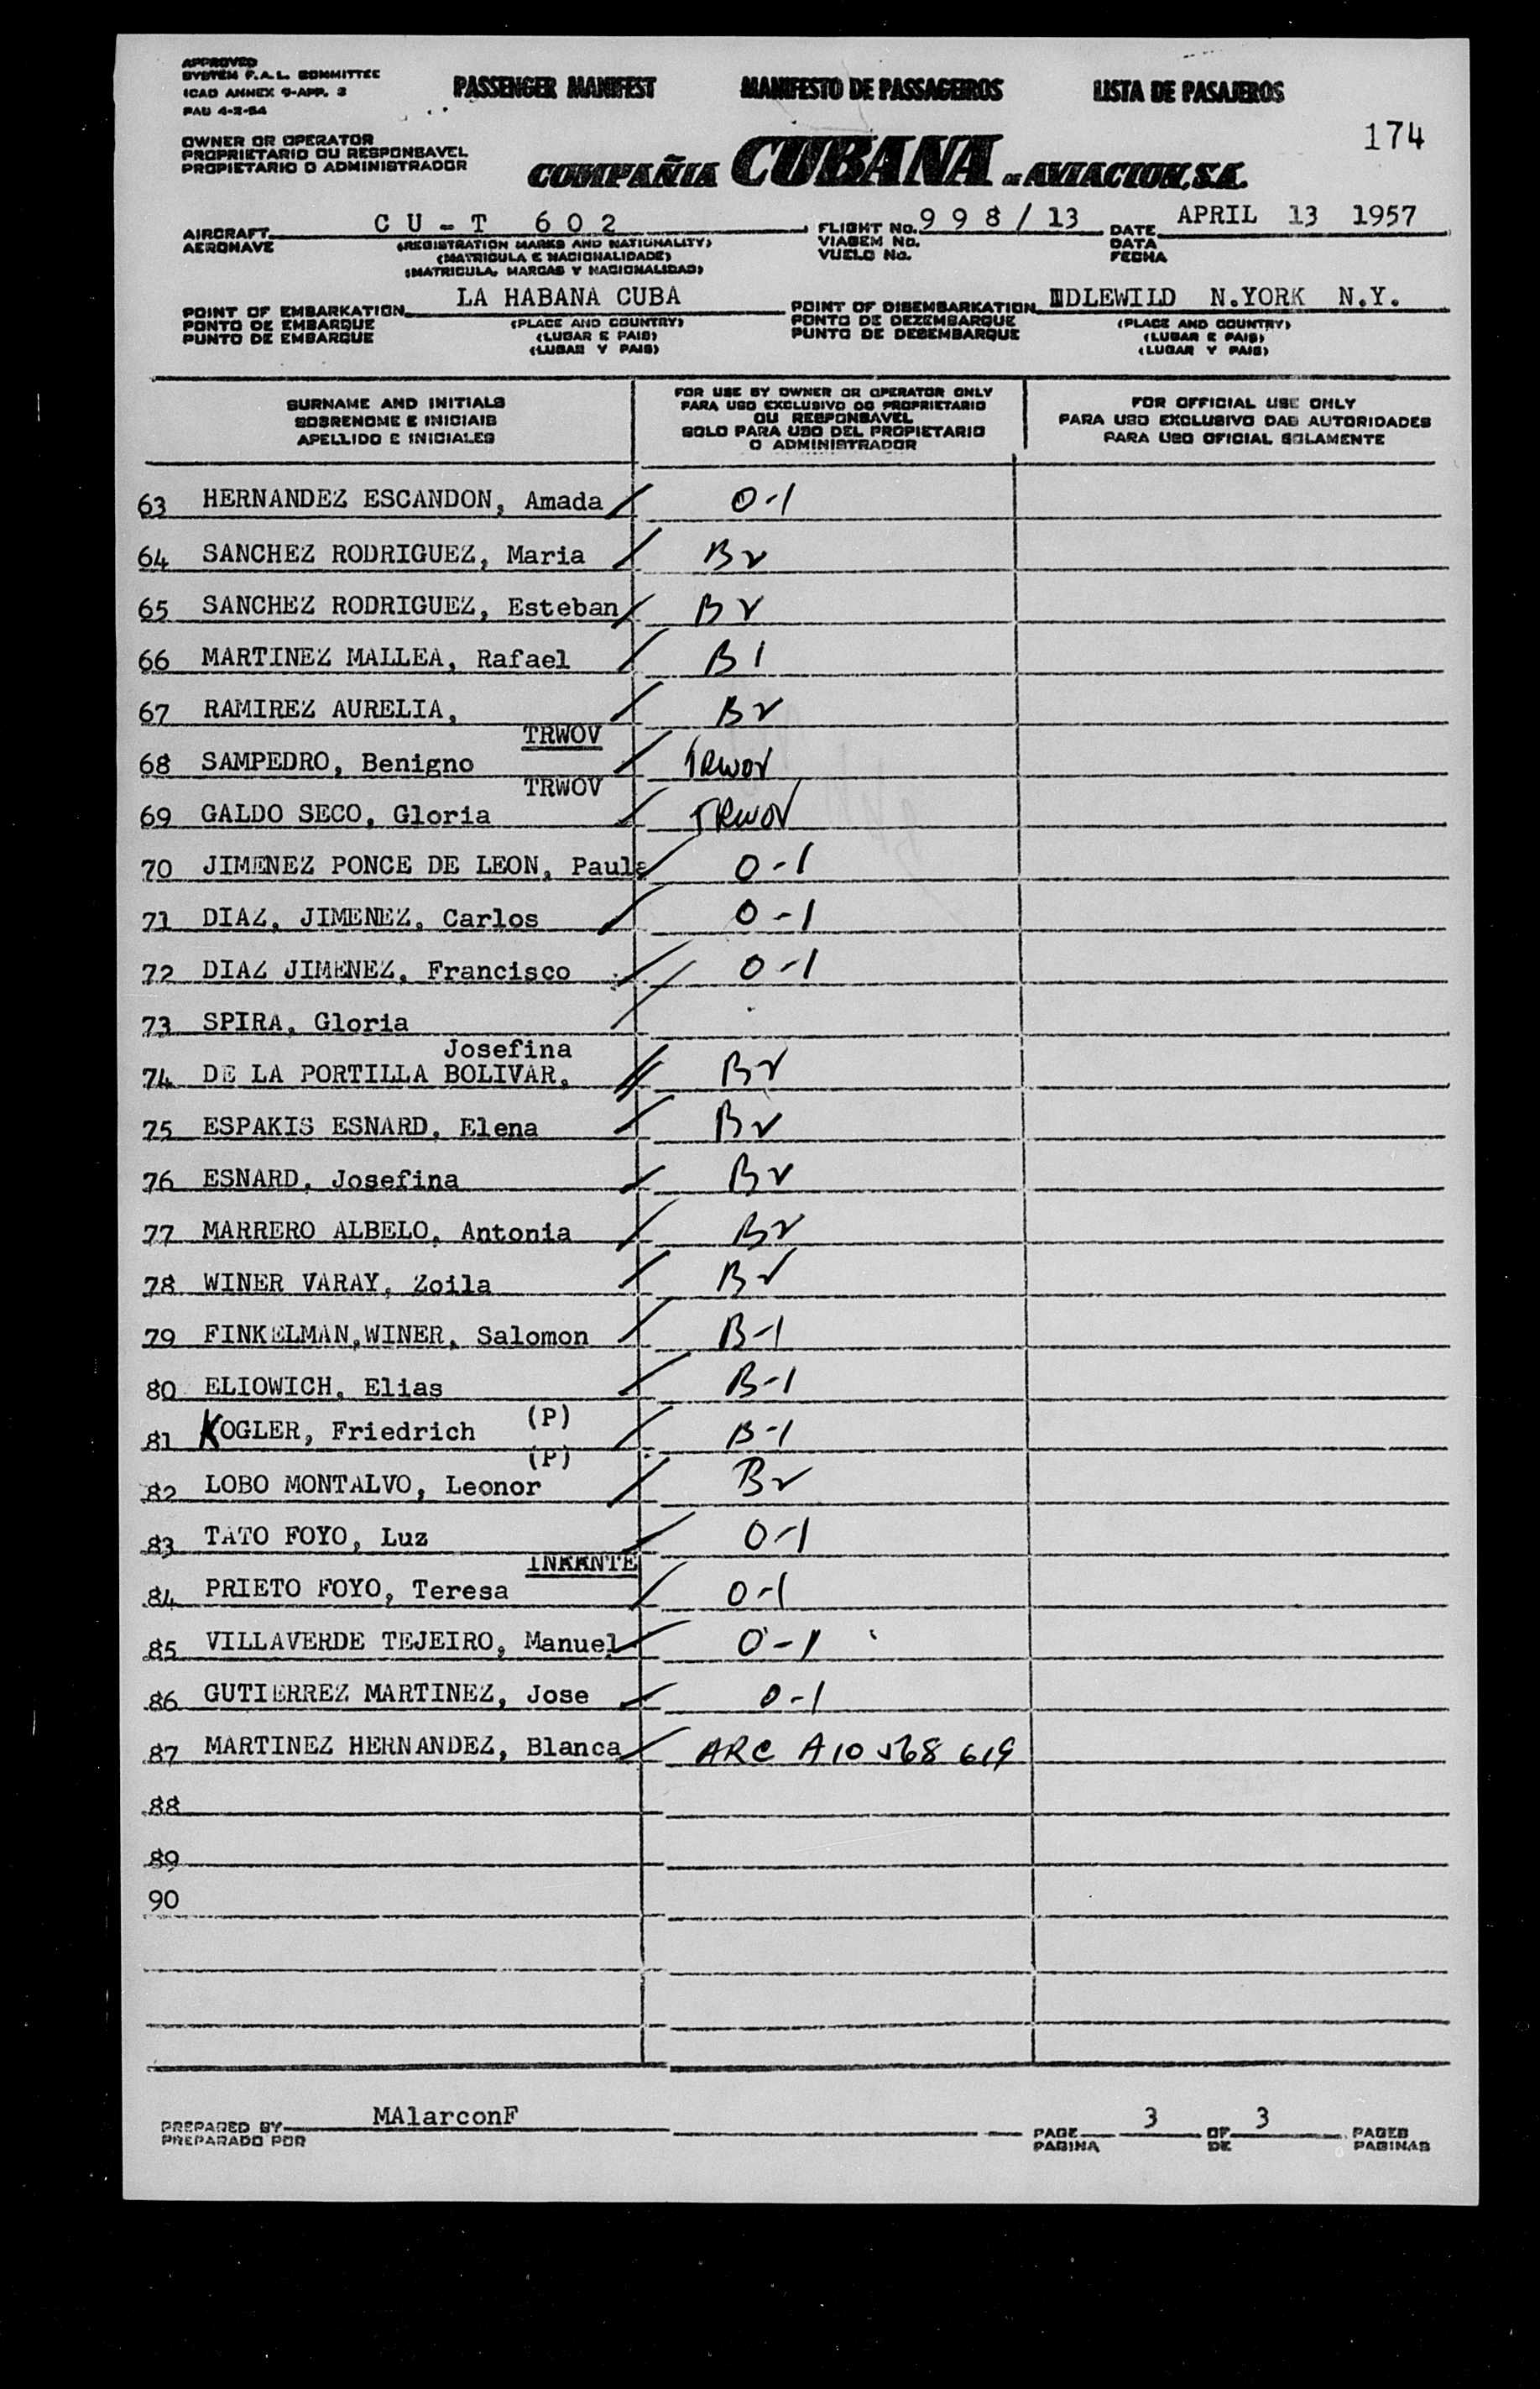 APPROVED
SYSTEM F.A.L. COMMITTEE
ICAO ANNEX 9-APP. 3
PAU 4-2-54
PASSENGER MANIFEST MANIFESTO DE PASSAGEIROS LISTA DE PASAJEROS
174
OWNER OR OPERATOR
PROPRIETARIO OU RESPONSAVEL
PROPIETARIO O ADMINISTRADOR
COMPAÑIA CUBANA DE AVIACION, S.A.
AIRCRAFT CU-T 602 FLIGHT No. 998/13 DATE APRIL 13 1957
AERONAVE (REGISTRATION MARKS AND NATIONALITY) VIAGEM No. DATA
(MATRICULA E NACIONALIDADE) VUELO No. FECHA
(MATRICULA, MARCAS Y NACIONALIDAD)
POINT OF EMBARKATION LA HABANA CUBA POINT OF DISEMBARKATION IDLEWILD N.YORK N.Y.
PONTO DE EMBARQUE (PLACE AND COUNTRY) PONTO DE DEZEMBARQUE (PLACE AND COUNTRY)
PUNTO DE EMBARQUE (LUGAR E PAIS) PUNTO DE DESEMBARQUE (LUGAR E PAIS)
(LUGAR Y PAIS) (LUGAR Y PAIS)
SURNAME AND INITIALS
SOBRENOME E INICIAIS
APELLIDO E INICIALES
FOR USE BY OWNER OR OPERATOR ONLY
PARA USO EXCLUSIVO DO PROPRIETARIO
OU RESPONSAVEL
SOLO PARA USO DEL PROPIETARIO
O ADMINISTRADOR
FOR OFFICIAL USE ONLY
PARA USO EXCLUSIVO DAS AUTORIDADES
PARA USO OFICIAL SOLAMENTE
63 HERNANDEZ ESCANDON, Amada O-1
64 SANCHEZ RODRIGUEZ, Maria B2
65 SANCHEZ RODRIGUEZ, Esteban B2
66 MARTINEZ MALLEA, Rafael B1
67 RAMIREZ AURELIA, B2
TRWOV
68 SAMPEDRO, Benigno TRWOV
TRWOV
69 GALDO SECO, Gloria TRWOV
70 JIMENEZ PONCE DE LEON, Paula O-1
71 DIAZ, JIMENEZ, Carlos O-1
72 DIAZ JIMENEZ, Francisco O-1
73 SPIRA, Gloria
Josefina
74 DE LA PORTILLA BOLIVAR, B2
75 ESPAKIS ESNARD, Elena B2
76 ESNARD, Josefina B2
77 MARRERO ALBELO, Antonia B2
78 WINER VARAY, Zoila B2
79 FINKELMAN,WINER, Salomon B-1
80 ELIOWICH, Elias B-1
(P)
81 KOGLER, Friedrich B-1
(P)
82 LOBO MONTALVO, Leonor B2
83 TATO FOYO, Luz O-1
INKANTE
84 PRIETO FOYO, Teresa O-1
85 VILLAVERDE TEJEIRO, Manuel O-1
86 GUTIERREZ MARTINEZ, Jose O-1
87 MARTINEZ HERNANDEZ, Blanca ARC A10 568 619
88
89
90
PREPARED BY MAlarconF PAGE 3 OF 3 PAGES
PREPARADO POR PAGINA DE PAGINAS